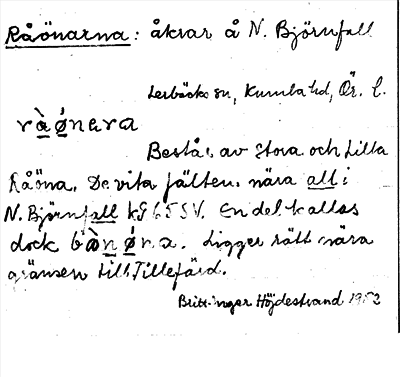 Råönarna: åkrar å N. Björnfall
Lerbäcks sn, Kumla hd, Ör. l.
råönara
Består av Stora och Lilla
Råöna. De vita fälten nära all i
N. Björnfall SV. En del kallas
dock Ligger rätt nära
gränsen till Tillefärd.
Britt Inger Höjdestrand 1952